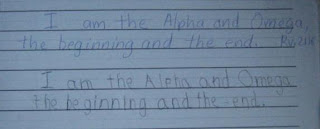 I am the Alpha and Omega,
the beginning and the end.
I am the Alpha and Omega
the beginning and the end.